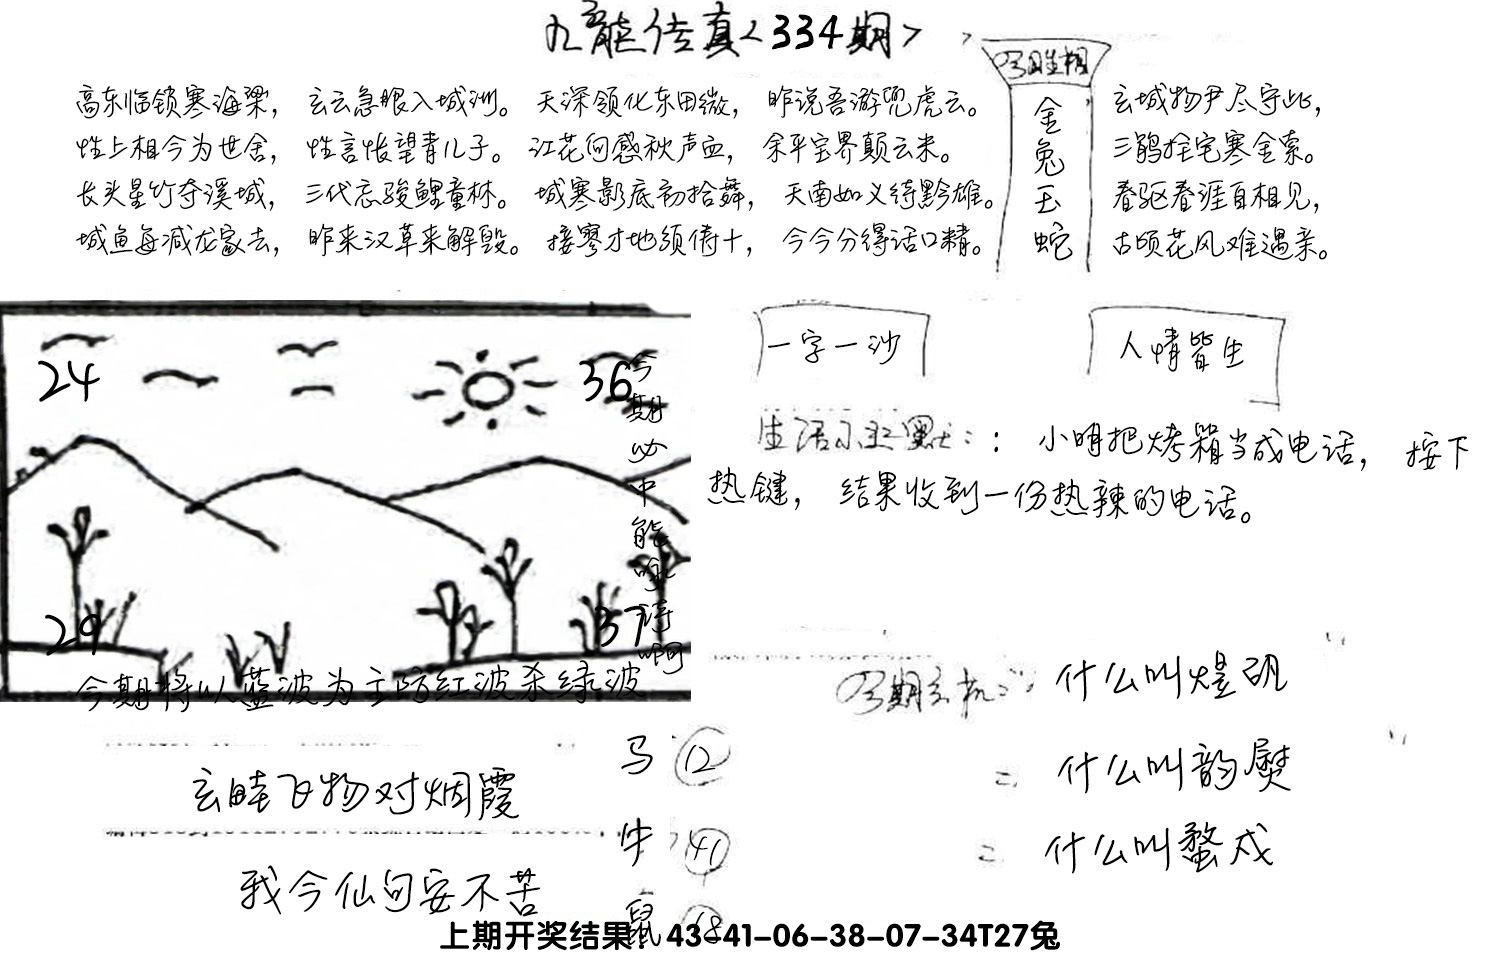 九龙传真<334期>
高东临锁寒海梁，玄云急眼入城洲。天深领化东田微，昨说吾游兜虎云。
性上相今为世舍，性言怅望青儿子。江花向感秋声血，余平宝界颠云米。
长头星竹夺溪城，三代忘骏鲤童林。城寒影底初拾舞，天南如义待黔雄。
城鱼每减龙家去，昨来汉草来解毁。接寥才地须侍十，今今分得话口精。
金兔玉蛇
玄城物尹尽宇此，
三鹊拴宅寒金索。
春驱春涯自相见，
古顷花风难遇亲。
24
36
29
37
今期必中能唯待啊
今期将以蓝波为主防红波杀绿波
一字一沙
人情皆生
生活小幽默：：小明把烤箱当成电话，按下
热键，结果收到一份热辣的电话。
什么叫煋矾
什么叫韵熨
什么叫蝥戍
玄畦飞物对烟霞
我今仙句安不苦
马 12
牛 41
鼠 18
上期开奖结果：43-41-06-38-07-34T27兔